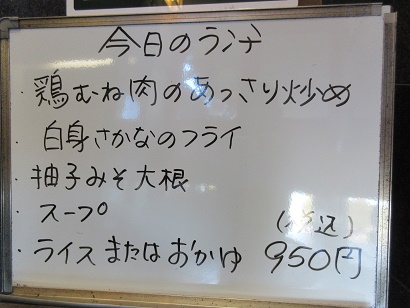 今日のランチ
・鶏むね肉のあっさり炒め
白身さかなのフライ
・柚子みそ大根
・スープ
(税込)
・ライスまたはおかゆ 950円